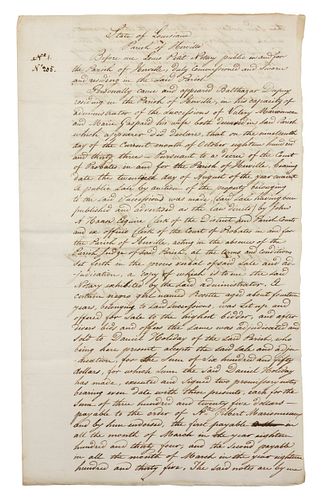 State of Louisiana
Parish of Iberville
N° 205.
Before me Louis Petit Notary public in and for
the Parish of Iberville, duly commissioned and Sworn
and residing in the Said Parish
Personally came and appeared Balthazar Dupuy
residing in the Parish of Iberville, in his capacity of
Administrator of the Successions of Valery
and Marie Gaspard his wife both deceased in said Parish
which appearer did declare, that on the nineteenth
day of the current month of October eighteen hundred
and thirty three – Pursuant to a decree of the Court
of Probates in and for the Parish of Iberville, bearing
date the twentieth day of August of the year current
A public sale by auction of the property belonging
to the said Successions was made (said Sale having been
published and advertised as the law directs) by John
Esquire Clerk of the District and Parish Courts
and ex officio Clerk of the Court of Probates in and for
the Parish of Iberville, acting in the absence of the
Parish Judge of said Parish, at the terms and conditions
set forth in the procès verbal of said sale and ad-
judication, a copy of which is to me the said
Notary exhibited by the said administrator. A
certain negro girl named aged about fourteen
years, belonging to said successions, was set up and
offered for Sale to the highest bidder, and after
divers bids and offers the same was adjudicated and
sold to Daniel Holiday of the Said Parish, who
being here present accepts the said Sale and adju-
dication, for the Sum of Six hundred and fifty
dollars, for which Sum the Said Daniel Holiday
has made, executed and Signed two promissory notes
bearing even date with these presents, each for the
Sum of three hundred and twenty five dollars
payable to the order of Mr. Gilbert
and by him endorsed, the first payable in
all the month of March in the year eighteen
hundred and thirty four, and the Second payable
in all the month of March in the year eighteen
hundred and thirty five. The Said notes are by me